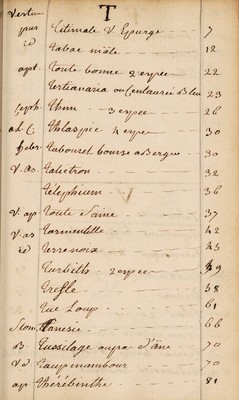 Vertus T
pur Titimale V Epurge - - 7
id Tabac mâle - - - - 12
apt. Toute bonne 2 espee - - 22
Tertianaria ou Centaurée Bleu 23
Ceph. Thim - - - 3 espee - - 26
ad C. Thlaspie 4 espee - - 30
febr. Tabouret bourse a Berger - 30
V. as. Talictron - - - - 32
Telephium - - - 36
V. ap Toute Saine - - - 37
V. as Tormentille - - - 42
id Terrenoix - - - - 45
Turbith - - 2 espee - - 49
Trefle - - - - 58
Tue Loup - - - - 61
Stom. Tanesie - - - 66
B Tussilage ou pas d'âne - 70
V d Taupinambour - - - 70
ap Thérébinthe - - - 81